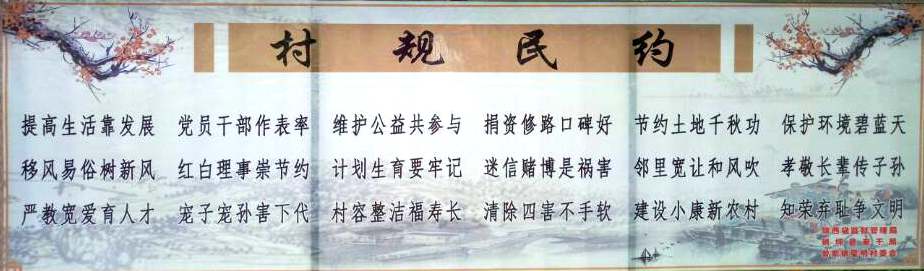 村规民约
提高生活靠发展 党员干部作表率 维护公益共参与 捐资修路口碑好 节约土地千秋功 保护环境碧蓝天
移风易俗树新风 红白理事崇节约 计划生育要牢记 迷信赌博是祸害 邻里宽让和风吹 孝敬长辈传子孙
严教宽爱育人才 宠子宠孙害下代 村容整洁福寿长 清除四害不手软 建设小康新农村 知荣弃耻争文明